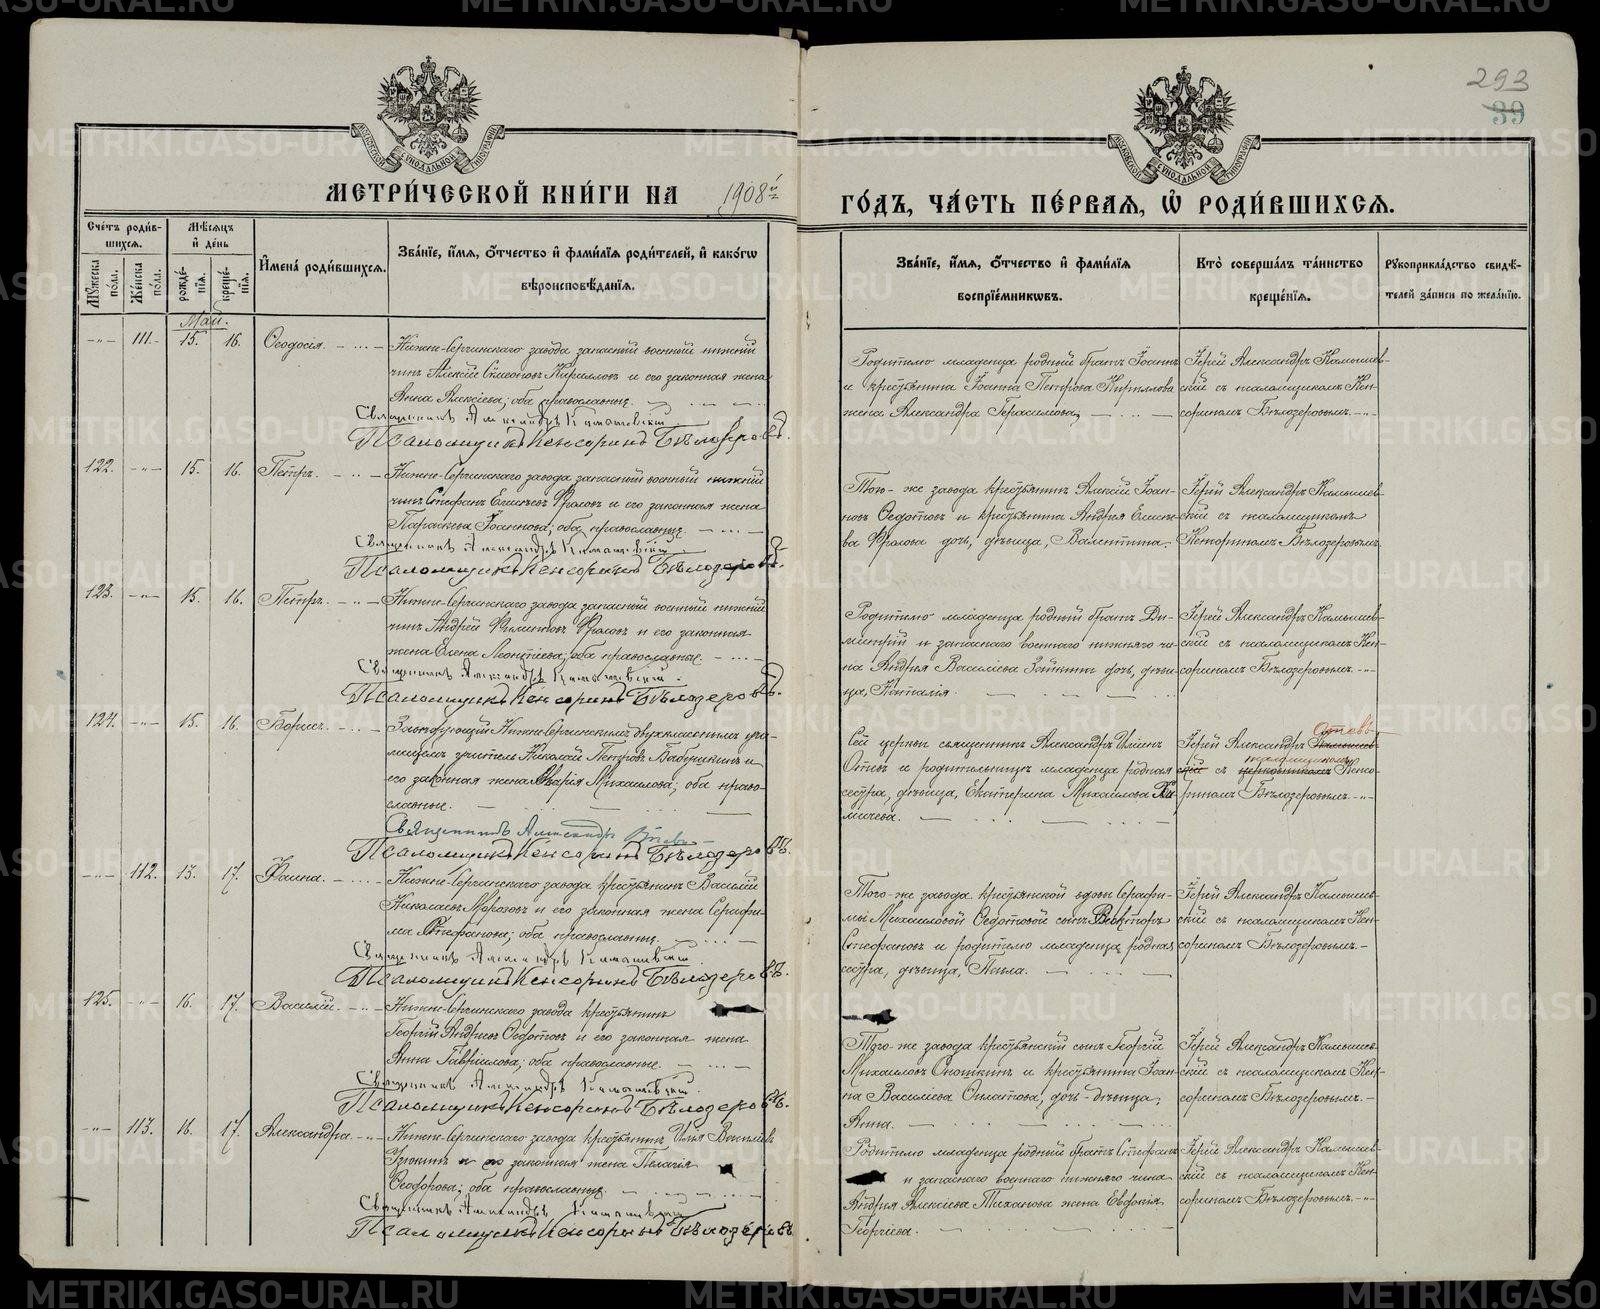 293
39
МЕТРИ́ЧЕСКОЙ КНИ́ГИ НА 1908й
ГО́ДЪ, ЧА́СТЬ ПЕ́РВАЯ, Ѡ РОДИ́ВШИХСЯ.
МОСКОВСКОЙ СѴНОДАЛЬНОЙ ТИПОГРАФІИ
МОСКОВСКОЙ СѴНОДАЛЬНОЙ ТИПОГРАФІИ
Сче́тъ роди́в-
шихся.
Мѣ́сяцъ
и́ де́нь
Мꙋ́жеска по́ла.
Же́нска по́ла.
рожде́-
нїя.
креще́-
нїя.
И҆мена̀ роди́вшихся.
Зва́нїе, и҆́мя, ѻ҆́тчество и҆ фами́лїя роди́телей, и҆ како́гѡ
вѣроисповѣ́данїя.
Зва́нїе, и҆́мя, ѻ҆́тчество и҆ фами́лїя
воспрїе́мниковъ.
Кто̀ соверша́лъ та́инство
креще́нїя.
Рꙋкоприкла́дство свидѣ́-
телей за́писи по жела́нїю.
Май.
-"- 111. 15. 16. Ѳеодосія.
Нижне-Сергинскаго завода запасной военный нижній
чинъ Алексій Симеоновъ Кирилловъ и его законная жена
Анна Алексіева; оба православные.
Священникъ Александръ Камышевскій
Псаломщикъ Кенсоринъ Бѣлозеровъ.
Родителю младенца родной братъ Іоаннъ
и крестьянина Іоанна Петрова Кириллова
жена Александра Герасимова,
Іерей Александръ Камышев-
скій съ псаломщикомъ Кен-
сориномъ Бѣлозеровымъ. -"-
122. -"- 15. 16. Петръ.
Нижне-Сергинскаго завода запасной военный нижній
чинъ Стефанъ Елисѣевъ Фроловъ и его законная жена
Параскева Іоаннова; оба православные.
Священникъ Александръ Камышевскій
Псаломщикъ Кенсоринъ Бѣлозеровъ.
Того-же завода крестьянинъ Алексій Іоан-
новъ Ѳедотовъ и крестьянина Андрея Елисѣе-
ва Фролова дочь, дѣвица, Валентина.
Іерей Александръ Камышев-
скій съ псаломщикомъ
Кенсориномъ Бѣлозеровымъ.
123. -"- 15. 16. Петръ.
Нижне-Сергинскаго завода запасной военный нижній
чинъ Андрей Филипповъ Фроловъ и его законная
жена Елена Леонтіева; оба православные.
Священникъ Александръ Камышевскій.
Псаломщикъ Кенсоринъ Бѣлозеровъ.
Родителю младенца родной братъ Ди-
митрій и запаснаго военнаго нижняго чи-
на Андрея Василіева дочь, дѣви-
ца, Наталія.
Іерей Александръ Камышев-
скій съ псаломщикомъ Кен-
сориномъ Бѣлозеровымъ. -"-
124. -"- 15. 16. Борисъ.
Завѣдующій Нижне-Сергинскимъ двухкласснымъ учи-
лищемъ учитель Николай Петровъ Бабушкинъ и
его законная жена Марія Михаилова; оба право-
славные.
Священникъ Александръ Отевъ
Псаломщикъ Кенсоринъ Бѣлозеровъ.
Сей церкви священникъ Александръ Иліинъ
Отевъ и родительницы младенца родная
сестра, дѣвица, Екатерина Михаилова
Отевъ
Іерей Александръ Камышев-
псаломщикомъ
скій съ церковникомъ Кенсо-
риномъ Бѣлозеровымъ. -"-
-"- 112. 13. 17. Фаина.
Нижне-Сергинскаго завода крестьянинъ Василій
Николаевъ Морозовъ и его законная жена Серафи-
ма Стефанова; оба православные.
Священникъ Александръ Камышевскій.
Псаломщикъ Кенсоринъ Бѣлозеровъ.
Того-же завода крестьянской вдовы Серафи-
мы Михаиловой Ѳедотовой сынъ Викторъ
Стефановъ и родителю младенца родная
сестра, дѣвица,
Іерей Александръ Камышев-
скій съ псаломщикомъ Кен-
сориномъ Бѣлозеровымъ. -
125. -"- 16. 17. Василій.
Нижне-Сергинскаго завода крестьянинъ
Георгій Андреевъ Ѳедотовъ и его законная жена
Анна Гавріилова; оба православные.
Священникъ Александръ Камышевскій.
Псаломщикъ Кенсоринъ Бѣлозеровъ.
Того-же завода крестьянскій сынъ Георгій
Михаиловъ и крестьянина Іоан-
на Василіева дочь-дѣвица,
Анна.
Іерей Александръ Камышев-
скій съ псаломщикомъ Кен-
сориномъ Бѣлозеровымъ. -
-"- 113. 16. 17. Александра.
Нижне-Сергинскаго завода крестьянинъ Илія Василіевъ
и его законная жена Пелагія
Ѳеодорова; оба православные.
Священникъ Александръ Камышевскій
Псаломщикъ Кенсоринъ Бѣлозеровъ
Родителю младенца родной братъ Стефанъ
и запаснаго военнаго нижняго чина
Андрея Алексіева Тиханова жена Евдокія
Георгіева.
Іерей Александръ Камышев-
скій съ псаломщикомъ Кен-
сориномъ Бѣлозеровымъ. -"-
METRIKI.GASO-URAL.RU